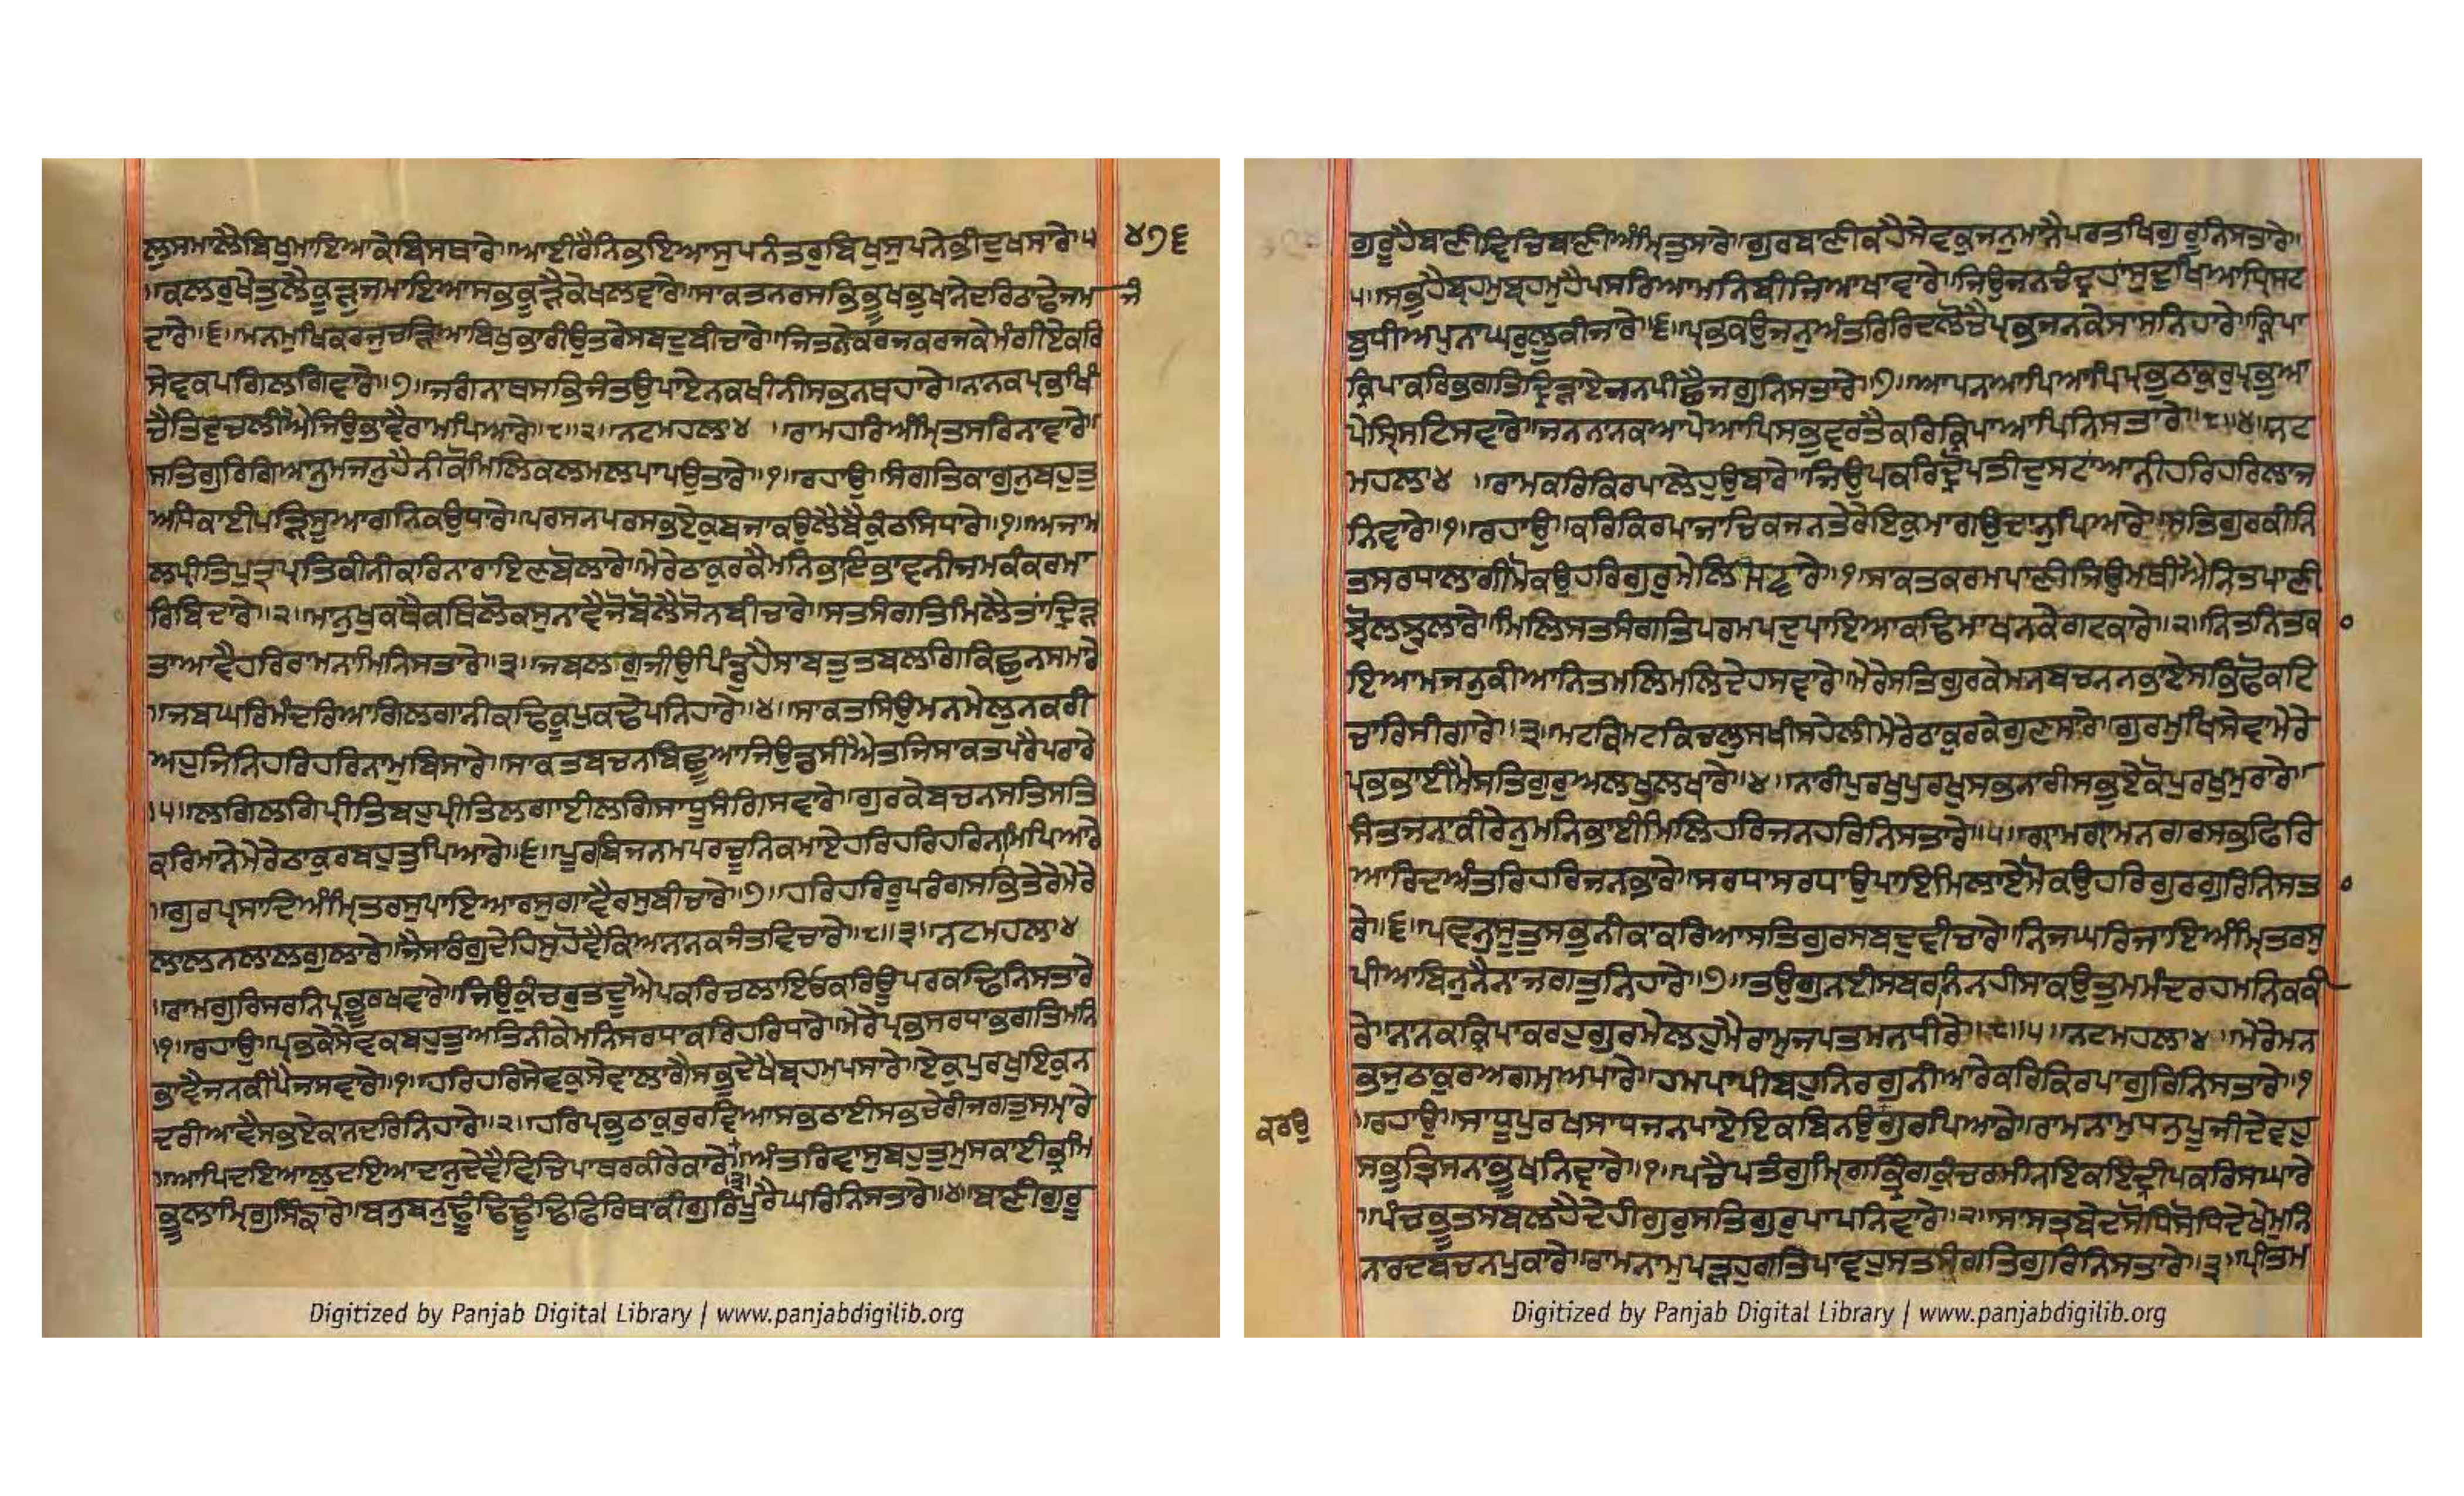 ਲੁਸਮਾਲੈਬਿਖੁਮਾਇਆਕੇਬਿਸਥਾਰੇ॥ਆਈਰੈਨਿਭਇਆਸੁਪਨੰਤਰੁਬਿਖੁਸੁਪਨੇਭੀਦੁਖਸਾਰੇ॥੫ ੪੭੬
॥ਕਲਰੁਖੇਤੁਲੈਕੂੜੁਜਮਾਇਆਸਭਕੂੜੈਕੇਖਲਵਾਰੇ॥ਸਾਕਤਨਰਸਭਿਭੂਖਭੁਖਾਨੇਦਰਿਠਾਢੇਜਮ ਜੰ
ਦਾਰੇ॥੬॥ਮਨਮੁਖਿਕਰਜੁਚੜਿਆਬਿਖੁਭਾਰੀਉਤਰੇਸਬਦੁਬੀਚਾਰੇ॥ਜਿਤਨੇਕਰਜਕਰਜਕੇਮੰਗੀਏਕਰਿ
ਸੇਵਕਪਗਿਲਗਿਵਾਰੇ॥੭॥ਜਗੰਨਾਥਸਭਿਜੰਤ੍ਰਉਪਾਏਨਕਖੀਨੀਸਭਨਥਹਾਰੇ॥ਨਾਨਕਪ੍ਰਭੁਖਿੰ
ਚੈਤਿਵਚਲੀਐਜਿਉਭਾਵੈਰਾਮਪਿਆਰੇ॥੮॥੨॥ਨਟਮਹਲਾ੪ ॥ਰਾਮਹਰਿਅੰਮ੍ਰਿਤਸਰਿਨਾਵਾਰੇ॥
ਸਤਿਗੁਰਿਗਿਆਨੁਮਜਨੁਹੈਨੀਕੋਮਿਲਿਕਲਮਲਪਾਪਉਤਾਰੇ॥੧॥ਰਹਾਉ॥ਸੰਗਤਿਕਾਗੁਨੁਬਹੁਤੁ
ਅਧਿਕਾਈਪੜਿਸੂਆਗਨਿਕਉਧਾਰੇ॥ਪਰਸਨਪਰਸਭਏਕੁਬਜਾਕਉਲੈਬੈਕੁੰਠਸਿਧਾਰੇ॥੧॥ਅਜਾਮ
ਲਪ੍ਰੀਤਿਪੁਤ੍ਰਪ੍ਰਤਿਕੀਨੀਕਰਿਨਾਰਾਇਣਬੋਲਾਰੇ॥ਮੇਰੇਠਾਕੁਰਕੈਮਨਿਭਾਇਭਾਵਨੀਜਮਕੰਕਰਮਾ
ਰਿਬਿਦਾਰੇ॥੨॥ਮਾਨੁਖੁਕਥੈਕਥਿਲੋਕਸੁਨਾਵੈਜੋਬੋਲੈਸੋਨਬੀਚਾਰੇ॥ਸਤਸੰਗਤਿਮਿਲੈਤਾਂਦ੍ਰਿੜ
ਤਾਆਵੈਹਰਿਰਾਮਨਾਮਿਨਿਸਤਾਰੇ॥੩॥ਜਬਲਗੁਜੀਉਪਿੰਡੁਹੈਸਾਬਤੁਤਬਲਗਿਕਿਛੁਨਸਮਾਰੇ
॥ਜਬਘਰਿਮੰਦਰਿਆਗਿਲਗਾਨੀਕਢਿਕੂਪੁਕਢੇਪਨਿਹਾਰੇ॥੪॥ਸਾਕਤਸਿਉਮਨਮੇਲੁਨਕਰੀ
ਅਹੁਜਿਨਿਹਰਿਹਰਿਨਾਮੁਬਿਸਾਰੇ॥ਸਾਕਤਬਚਨਬਿਛੂਆਜਿਉਡਸੀਐਤਜਿਸਾਕਤਪਰੈਪਰਾਰੇ
॥੫॥ਲਗਿਲਗਿਪ੍ਰੀਤਿਬਹੁਪ੍ਰੀਤਿਲਗਾਈਲਗਿਸਾਧੂਸੰਗਿਸਵਾਰੇ॥ਗੁਰਕੇਬਚਨਸਤਿਸਤਿ
ਕਰਿਮਾਨੇਮੇਰੇਠਾਕੁਰਬਹੁਤੁਪਿਆਰੇ॥੬॥ਪੂਰਬਿਜਨਮਪਰਚੂਨਿਕਮਾਏਹਰਿਹਰਿਹਰਿਨਾਮਿਪਿਆਰੇ
॥ਗੁਰਪ੍ਰਸਾਦਿਅੰਮ੍ਰਿਤਰਸੁਪਾਇਆਰਸੁਗਾਵੈਰਸੁਬੀਚਾਰੇ॥੭॥ਹਰਿਹਰਿਰੂਪਰੰਗਸਭਿਤੇਰੇਮੇਰੇ
ਲਾਲਨਲਾਲਗੁਲਾਰੇ॥ਜੈਸਾਰੰਗੁਦੇਹਿਸੁਹੋਵੈਕਿਆਨਾਨਕਜੰਤਵਿਚਾਰੇ॥੮॥੩॥ਨਟਮਹਲਾ੪
॥ਰਾਮਗੁਰਿਸਰਨਿਪ੍ਰਭੂਰਖਵਾਰੇ॥ਜਿਉਕੁੰਚਰੁਤਦੂਐਪਕਰਿਚਲਾਇਓਕਰਿਊਪਰਕਢਿਨਿਸਤਾਰੇ
॥੧॥ਰਹਾਉ॥ਪ੍ਰਭਕੇਸੇਵਕਬਹੁਤੁਅਤਿਨੀਕੇਮਨਿਸਰਧਾਕਰਿਹਰਿਧਾਰੇ॥ਮੇਰੇਪ੍ਰਭਸਰਧਾਭਗਤਿਮਨਿ
ਭਾਵੈਜਨਕੀਪੈਜਸਵਾਰੇ॥੧॥ਹਰਿਹਰਿਸੇਵਕੁਸੇਵਾਲਾਗੈਸਭੁਦੇਖੈਬ੍ਰਹਮਪਸਾਰੇ॥ਏਕੁਪੁਰਖੁਇਕੁਨ
ਦਰੀਆਵੈਸਭਏਕਨਦਰਿਨਿਹਾਰੇ॥੨॥ਹਰਿਪ੍ਰਭੁਠਾਕੁਰੁਰਵਿਆਸਭਠਾਈਸਭੁਚੇਰੀਜਗਤੁਸਮ੍ਹਾਰੇ
॥ਆਪਿਦਇਆਲੁਦਇਆਦਾਨੁਦੇਵੈਵਿਚਿਪਾਥਰਕੀਰੇਕਾਰੇ॥੩॥ਅੰਤਰਿਵਾਸੁਬਹੁਤੁਮੁਸਕਾਈਭ੍ਰਮਿ
ਭੂਲਾਮਿਰਗੁਸਿੰਙ੍ਹਾਰੇ॥ਬਨੁਬਨੁਢੂਢਿਢੂਢਿਫਿਰਿਥਾਕੀਗੁਰਿਪੂਰੈਘਰਿਨਿਸਤਾਰੇ॥੪॥ਬਾਣੀਗੁਰੂ
ਗੁਰੂਹੈਬਾਣੀਵਿਚਿਬਾਣੀਅੰਮ੍ਰਿਤੁਸਾਰੇ॥ਗੁਰਬਾਣੀਕਹੈਸੇਵਕੁਜਨੁਮਾਨੈਪਰਤਖਿਗੁਰੂਨਿਸਤਾਰੇ॥
੫॥ਸਭੁਹੈਬ੍ਰਹਮੁਬ੍ਰਹਮੁਹੈਪਸਰਿਆਮਨਿਬੀਜਿਆਖਾਵਾਰੇ॥ਜਿਉਜਨਚੰਦ੍ਰਹਾਂਸੁਦੁਖਿਆਧ੍ਰਿਸਟ
ਬੁਧੀਅਪੁਨਾਘਰੁਲੂਕੀਜਾਰੇ॥੬॥ਪ੍ਰਭਕਉਜਨੁਅੰਤਰਿਰਿਦਲੋਚੈਪ੍ਰਭਜਨਕੇਸਾਸਨਿਹਾਰੇ॥ਕ੍ਰਿਪਾ
ਕ੍ਰਿਪਾਕਰਿਭਗਤਿਦ੍ਰਿੜਾਏਜਨਪੀਛੈਜਗੁਨਿਸਤਾਰੇ॥੭॥ਆਪਨਆਪਿਆਪਿਪ੍ਰਭੁਠਾਕੁਰੁਪ੍ਰਭੁਆ
ਪੇਸ੍ਰਿਸਟਿਸਵਾਰੇ॥ਜਨਨਾਨਕਆਪੇਆਪਿਸਭੁਵਰਤੈਕਰਿਕ੍ਰਿਪਾਆਪਿਨਿਸਤਾਰੇ॥੮॥੪॥ਨਟ
ਮਹਲਾ੪ ॥ਰਾਮਕਰਿਕਿਰਪਾਲੇਹੁਉਬਾਰੇ॥ਜਿਉਪਕਰਿਦ੍ਰੋਪਤੀਦੁਸਟਾਂਆਨੀਹਰਿਹਰਿਲਾਜ
ਨਿਵਾਰੇ॥੧॥ਰਹਾਉ॥ਕਰਿਕਿਰਪਾਜਾਚਿਕਜਨਤੇਰੇਇਕੁਮਾਗਉਦਾਨੁਪਿਆਰੇ॥ਸਤਿਗੁਰਕੀਨਿ
ਤਸਰਧਾਲਾਗੀਮੋਕਉਹਰਿਗੁਰੁਮੇਲਿਸਵਾਰੇ॥੧॥ਸਾਕਤਕਰਮਪਾਣੀਜਿਉਮਥੀਐਨਿਤਪਾਣੀ
ਝੋਲਝੁਲਾਰੇ॥ਮਿਲਿਸਤਸੰਗਤਿਪਰਮਪਦੁਪਾਇਆਕਢਿਮਾਖਨਕੇਗਟਕਾਰੇ॥੨॥ਨਿਤਨਿਤਕਾ
ਇਆਮਜਨੁਕੀਆਨਿਤਮਲਿਮਲਿਦੇਹਸਵਾਰੇ॥ਮੇਰੇਸਤਿਗੁਰਕੇਮਨਬਚਨਨਭਾਏਸਭਿਫੋਕਟ
ਚਾਰਸੀਗਾਰੇ॥੩॥ਮਟਕਿਮਟਕਿਚਲੁਸਖੀਸਹੇਲੀਮੇਰੇਠਾਕੁਰਕੇਗੁਣਸਾਰੇ॥ਗੁਰਮੁਖਿਸੇਵਾਮੇਰੇ
ਪ੍ਰਭਭਾਈਮੈਸਤਿਗੁਰੁਅਲਖੁਲਖਾਰੇ॥੪॥ਨਾਰੀਪੁਰਖੁਪੁਰਖੁਸਭਨਾਰੀਸਭੁਏਕੋਪੁਰਖੁਮੁਰਾਰੇ॥
ਸੰਤਜਨਾਕੀਰੇਨੁਮਨਿਭਾਈਮਿਲਿਹਰਿਜਨਹਰਿਨਿਸਤਾਰੇ॥੫॥ਗ੍ਰਾਮਗ੍ਰਾਮਨਗਰਸਭਫਿਰਿ
ਆਰਿਦਅੰਤਰਿਹਰਿਜਨਭਾਰੇ॥ਸਰਧਾਸਰਧਾਉਪਾਇਮਿਲਾਏਮੋਕਉਹਰਿਗੁਰਗੁਰਿਨਿਸਤਾ
ਰੇ॥੬॥ਪਵਨੁਸੂਤੁਸਭੁਨੀਕਾਕਰਿਆਸਤਿਗੁਰਸਬਦੁਵੀਚਾਰੇ॥ਨਿਜਘਰਿਜਾਇਅੰਮ੍ਰਿਤਰਸੁ
ਪੀਆਬਿਨੁਨੈਨਾਜਗਤੁਨਿਹਾਰੇ॥੭॥ਤਉਗੁਨਈਸਬਰਨਿਨਹੀਸਾਕਉਤੁਮਮੰਦਰਹਮਨਿਕਕੀ
ਰੇ॥ਨਾਨਕਕ੍ਰਿਪਾਕਰਹੁਗੁਰਮੇਲਹੁਮੈਰਾਮੁਜਪਤਮਨਧੀਰੇ॥੮॥੫॥ਨਟਮਹਲਾ੪॥ਮੇਰੇਮਨ
ਭਜੁਠਾਕੁਰਅਗਮਅਪਾਰੇ॥ਹਮਪਾਪੀਬਹੁਨਿਰਗੁਨੀਆਰੇਕਰਿਕਿਰਪਾਗੁਰਿਨਿਸਤਾਰੇ॥੧
ਕਰਉ ॥ਰਹਾਉ॥ਸਾਧੂਪੁਰਖਸਾਧਜਨਪਾਏਇਕਬਿਨਉਗੁਰਪਿਆਰੇ॥ਰਾਮਨਾਮੁਧਨੁਪੂਜੀਦੇਵਹੁ
ਸਭੁਤਿਸਨਾਭੂਖਨਿਵਾਰੇ॥੧॥ਪਚੈਪਤੰਗੁਮ੍ਰਿਗਭ੍ਰਿੰਗਕੁੰਚਰਮੀਨਇਕਇੰਦ੍ਰੀਪਕਰਿਸਘਾਰੇ
॥ਪੰਚਭੂਤਸਬਲਹੈਦੇਹੀਗੁਰੁਸਤਿਗੁਰੁਪਾਪਨਿਵਾਰੇ॥੨॥ਸਾਸਤ੍ਰਬੇਦਸੋਧਿਸੋਧਿਦੇਖੇਮੁਨਿ
ਨਾਰਦਬਚਨਪੁਕਾਰੇ॥ਰਾਮਨਾਮੁਪੜਹੁਗਤਿਪਾਵਹੁਸਤਸੰਗਤਿਗੁਰਿਨਿਸਤਾਰੇ॥੩॥ਪ੍ਰੀਤਮ
Digitized by Panjab Digital Library | www.panjabdigilib.org
Digitized by Panjab Digital Library | www.panjabdigilib.org